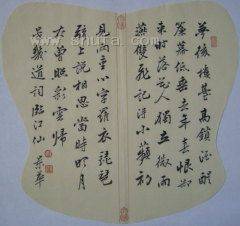 夢後樓臺高鎖酒醒
簾幕低垂去年春恨却
来時落花人獨立微雨
燕雙飛記得小蘋初
見兩重心字羅衣琵琶
弦上說相思當時明月
在曾照彩雲歸
晏幾道詞臨江仙